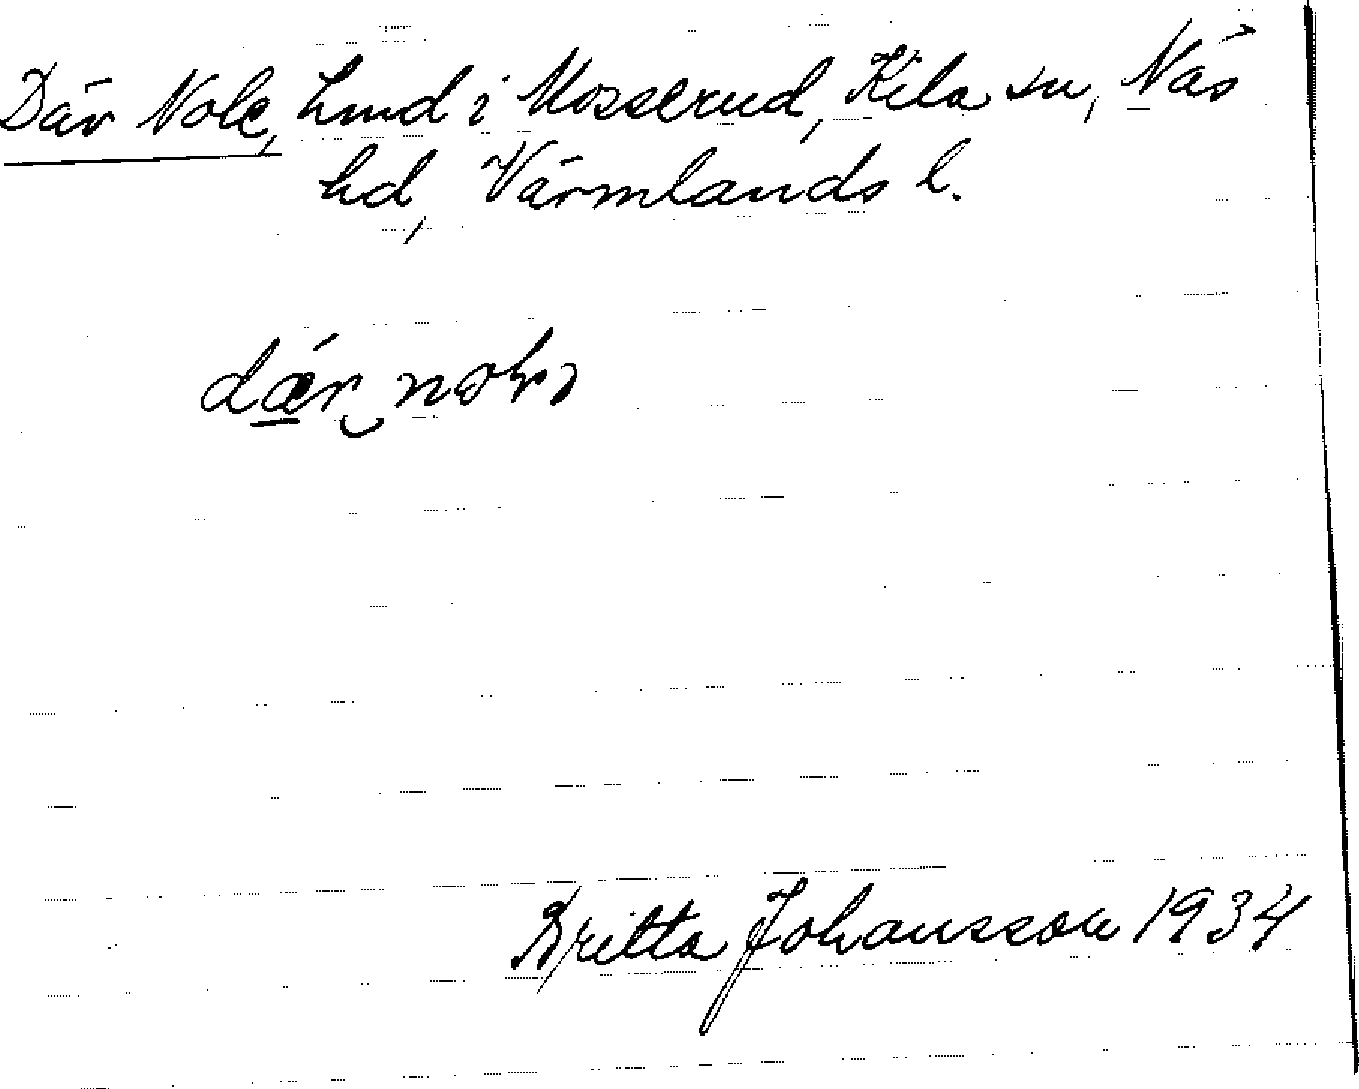 Där Nole, Lund i Mosserud, Kila sn, Näs
hd, Värmlands l.
där
Britta Johansson 1934